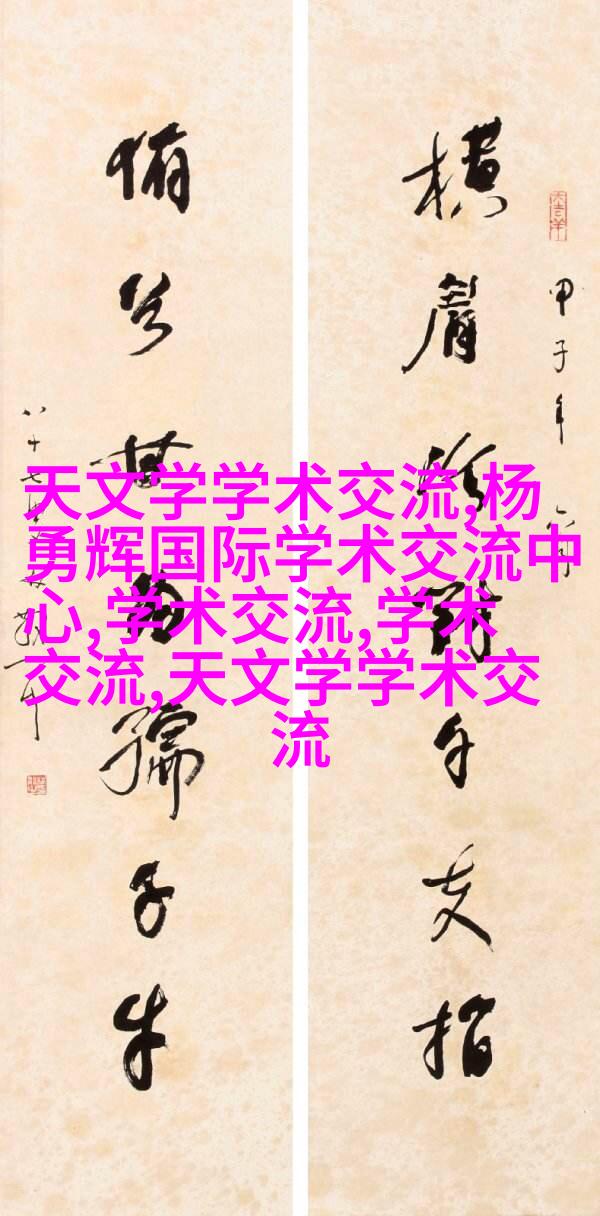 甲子年
横眉冷对千夫指
俯首甘为孺子牛
八十七
天文学学术交流,杨
勇辉国际学术交流中
心,学术交流,学术
交流,天文学学术交
流